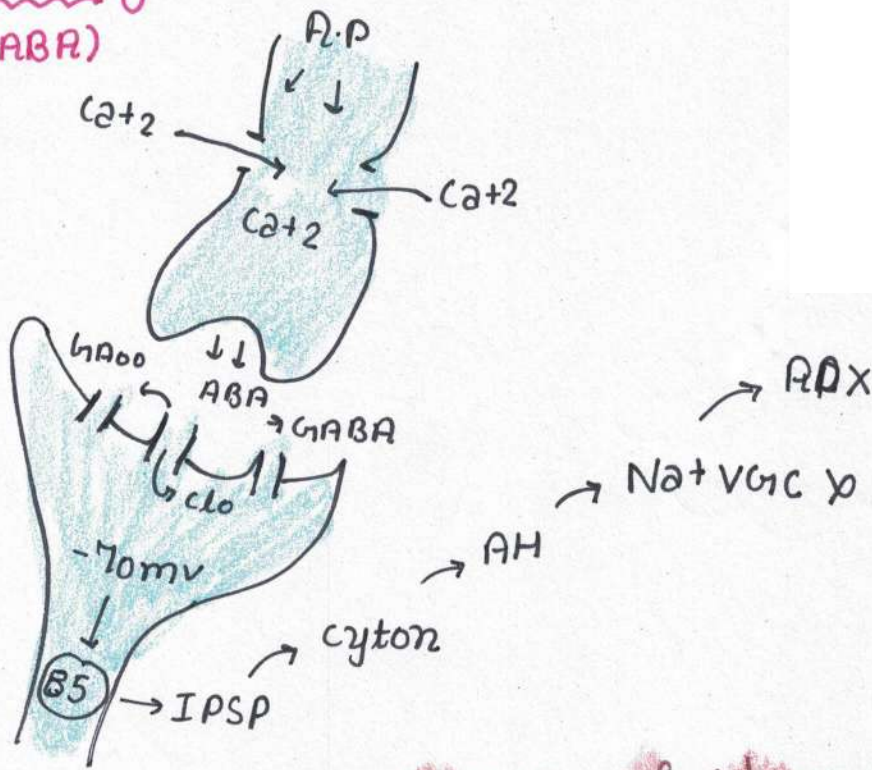 ABA)
A.P
Ca+2
Ca+2
Ca+2
GA
ABA
GABA
clo
-70mv
85
IPSP
cyton
AH
Na+ VGC
X